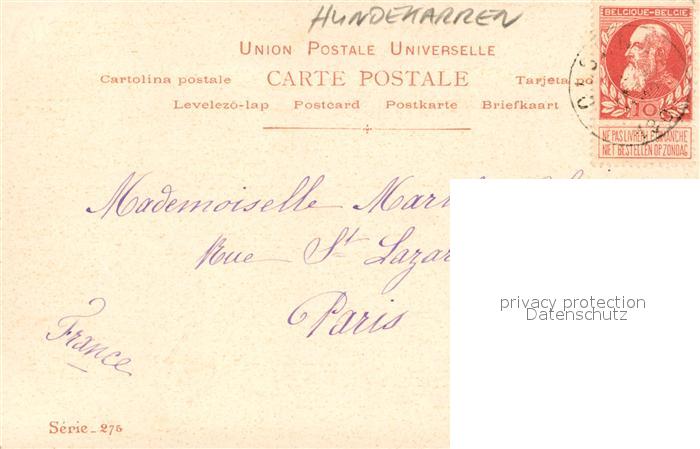 HUNDEKARREN
BELGIQUE-BELGIE
UNION POSTALE UNIVERSELLE
Cartolina postale CARTE POSTALE Tarjeta
Levelező-lap Postcard Postkarte Briefkaart
10
NE PAS LIVRER LE DIMANCHE
NIET BESTELLEN OP ZONDAG
Mademoiselle
Rue St Lazar
Paris
France
privacy protection
Datenschutz
Série-275